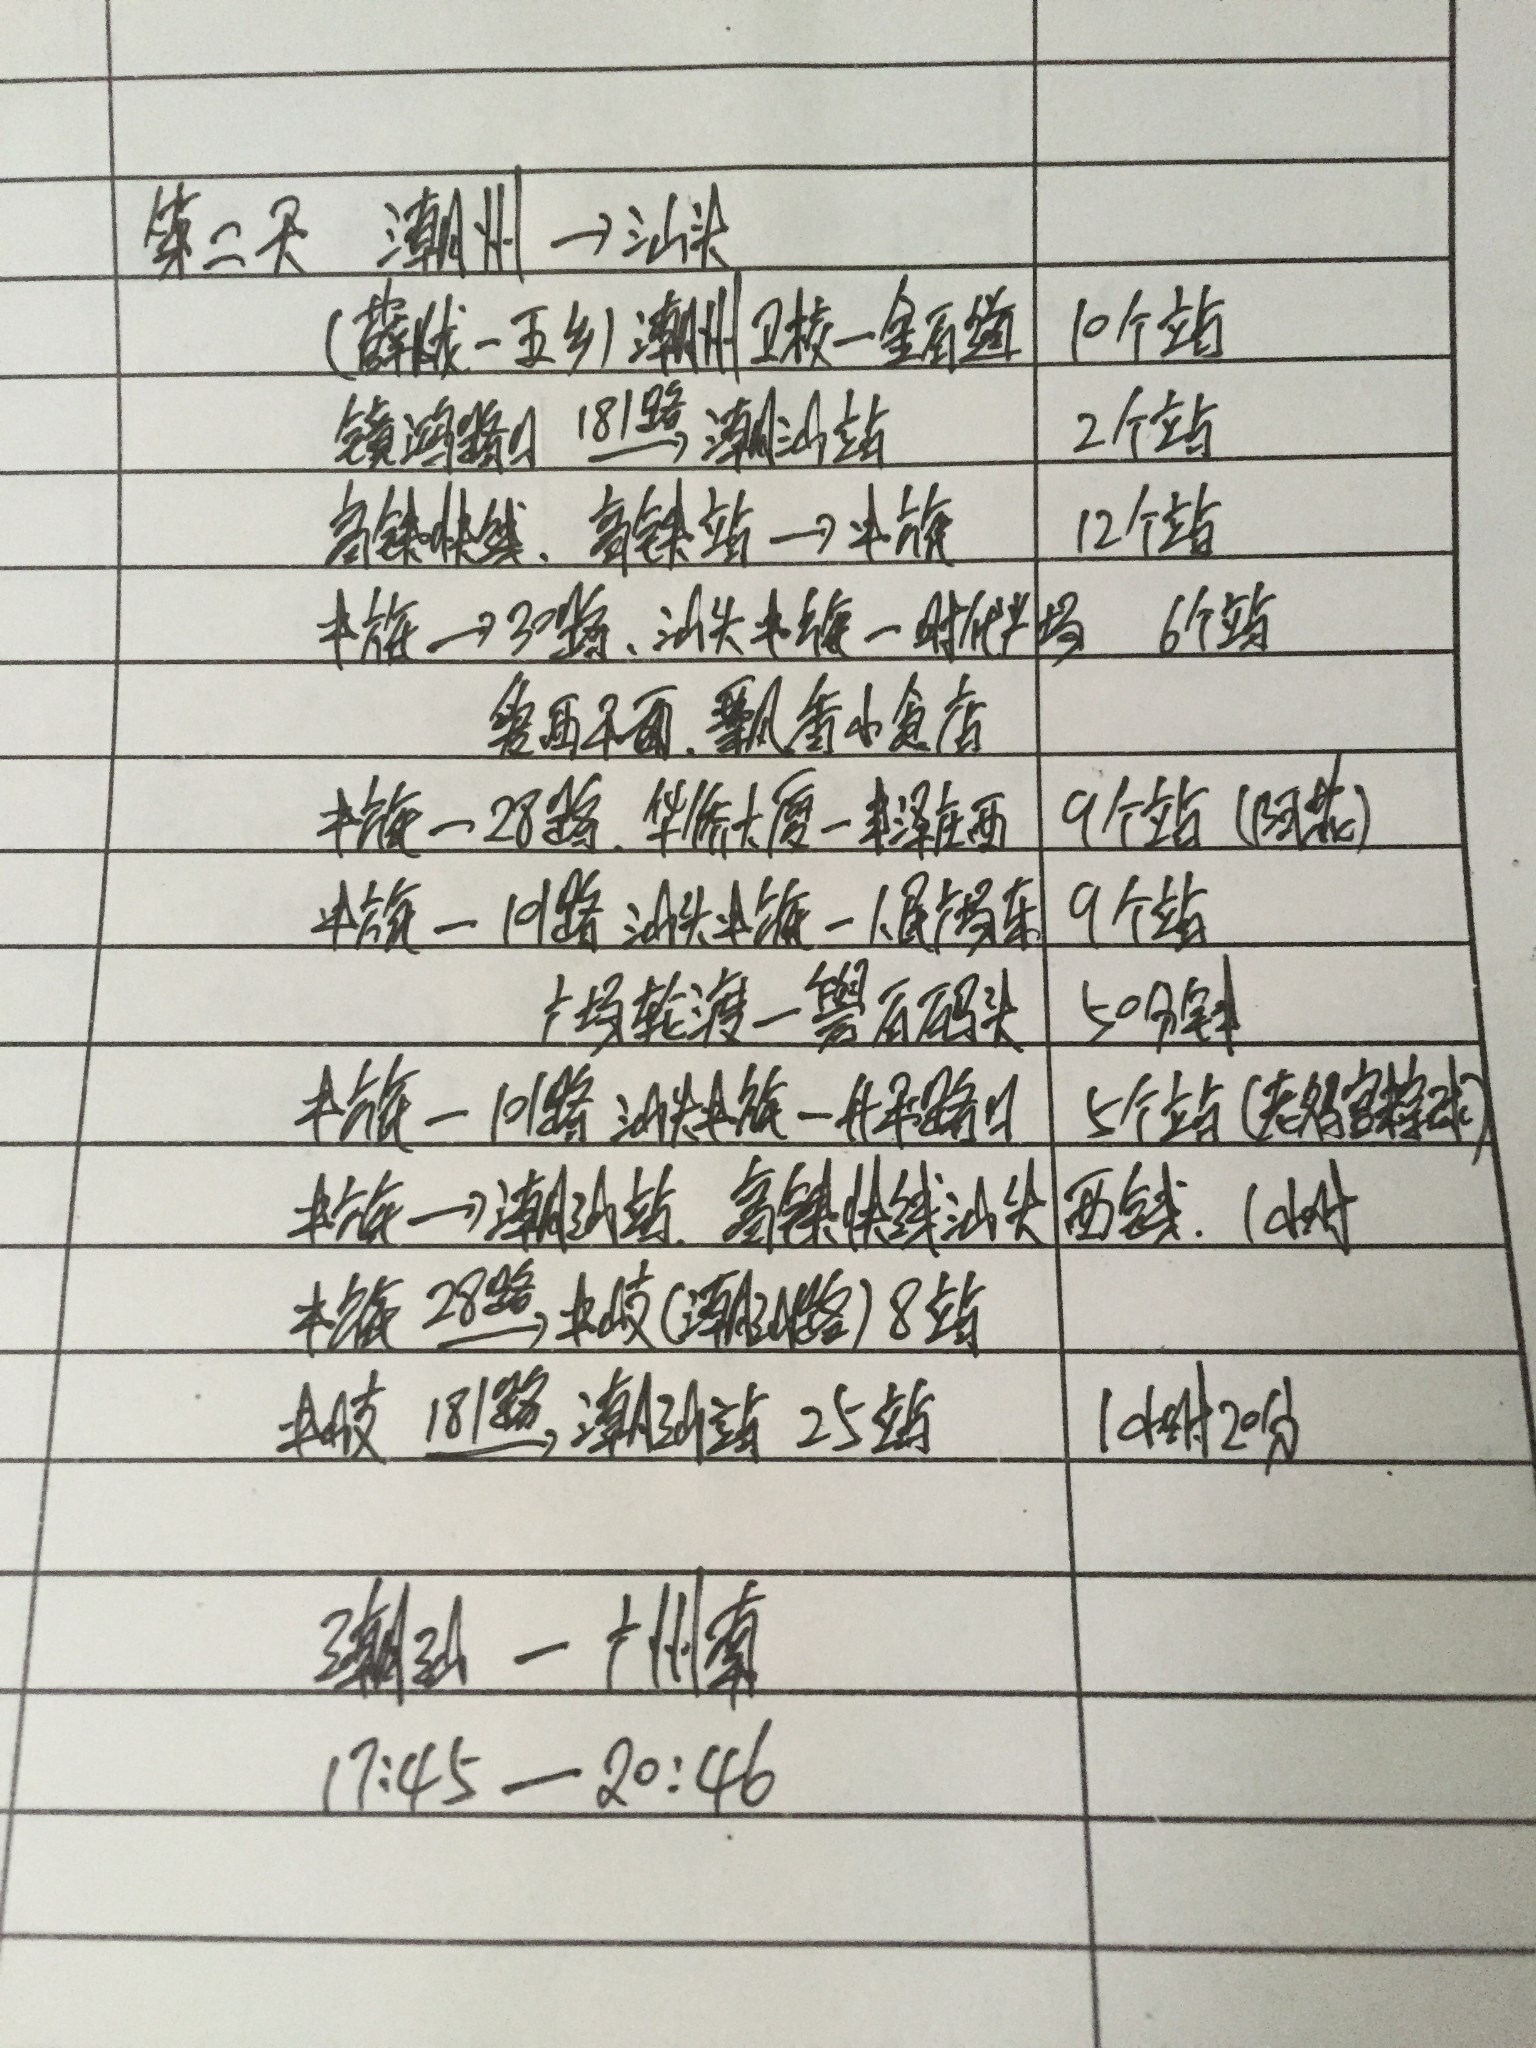 第二天 潮州→汕头
(薛陇-五乡)潮州卫校-金石镇 10个站
镇鸿路口 181路→ 潮汕站 2个站
高铁快线、高铁站→中旅 12个站
中旅→30路、汕头中旅-时代广场 6个站
爱西干面、飘香小食店
中旅-28路、华侨大厦-中泽庄西 9个站
中旅-101路 汕头中旅-人民广场东 9个站
广场轮渡-礐石码头 50分钟
中旅-101路 汕头中旅-升平路口 5个站(老妈宫粽球)
中旅→潮汕站、高铁快线汕头西线、1小时
中旅 28路→ 中岐(潮汕路)8站
中岐 181路→ 潮汕站 25站 1小时20分
潮汕-广州南
17:45-20:46